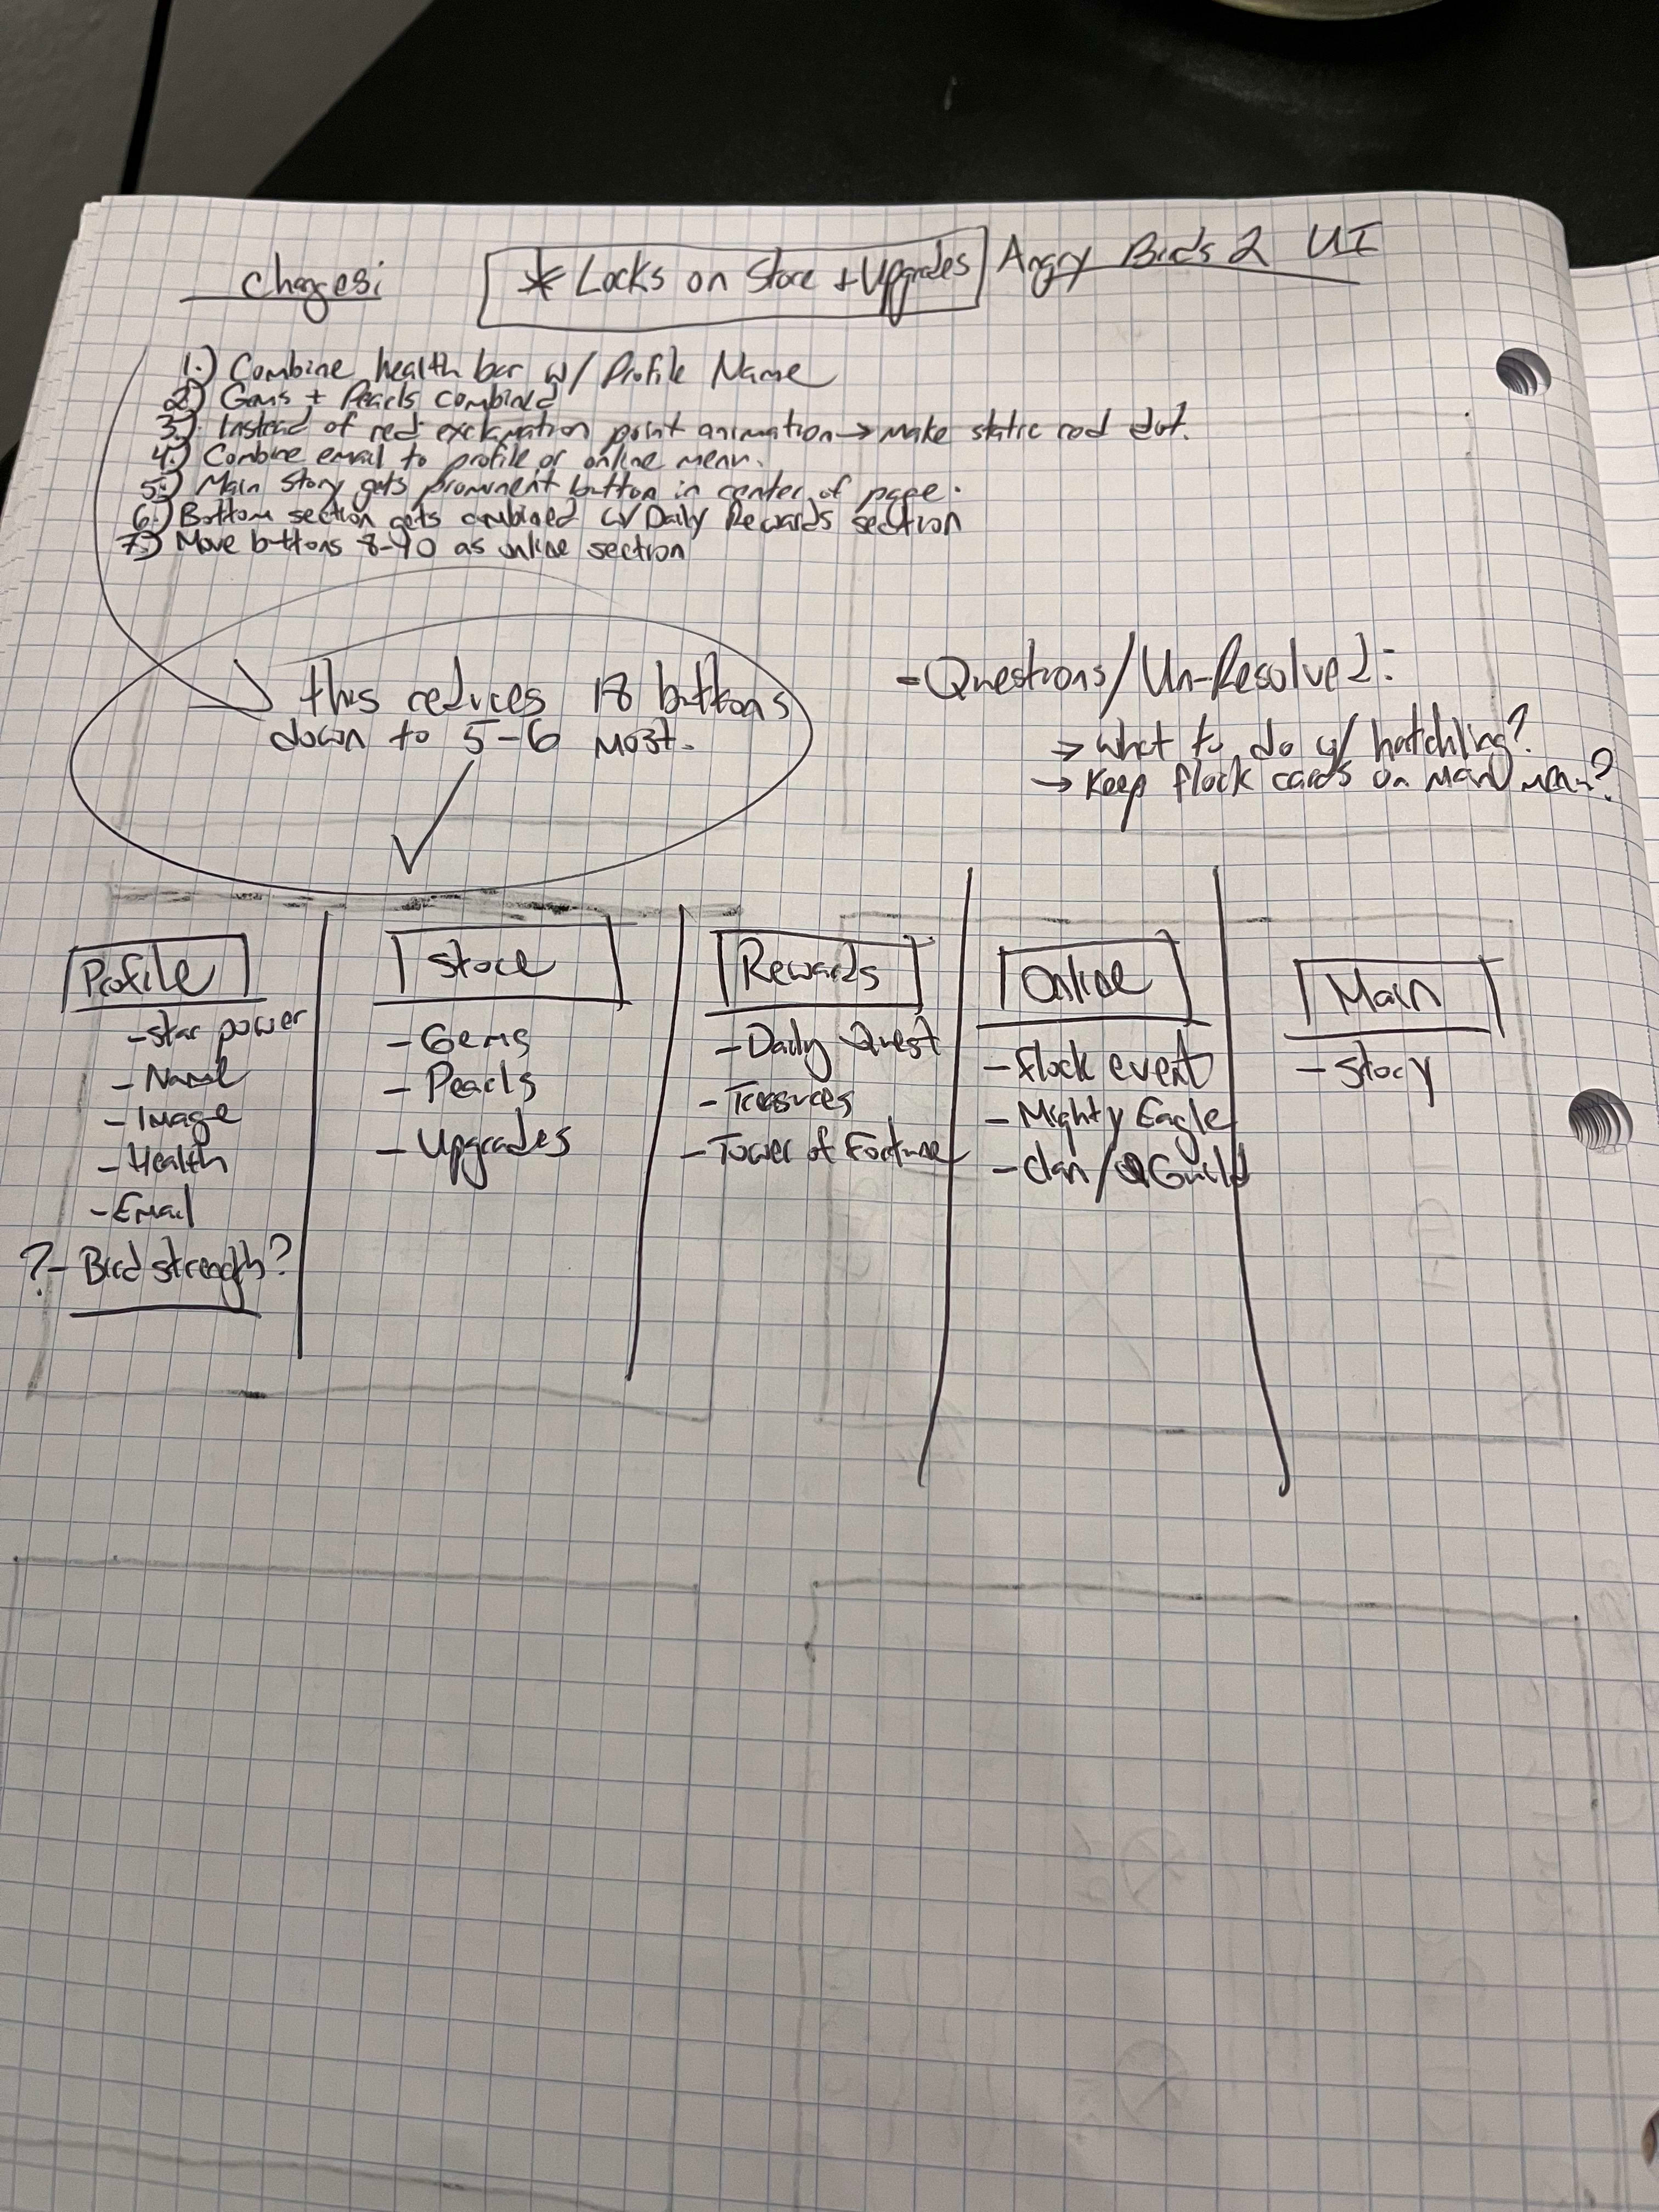 Angry Birds 2 UI
Changes:
* Locks on Store + Upgrades
1.) Combine health bar w/ Profile Name
2.) Gems + Pearls combined
3.) Instead of red exclamation point animation → make static red dot.
4.) Combine email to profile or online menu.
5.) Main Story gets prominent button in center of page.
6.) Bottom section gets combined w/ Daily Rewards section
7.) Move buttons 8-10 as online section
this reduces 18 buttons
down to 5-6 most.
- Questions/Un-Resolved:
→ what to do w/ hatchling?
→ Keep flock cards on main menu?
Profile
- Star power
- Name
- Image
- Health
- Email
? - Bird strength?
Store
- Gems
- Pearls
- Upgrades
Rewards
- Daily Quest
- Treasures
- Tower of Fortune
Online
- Flock event
- Mighty Eagle
- Clan/Guild
Main
- Story